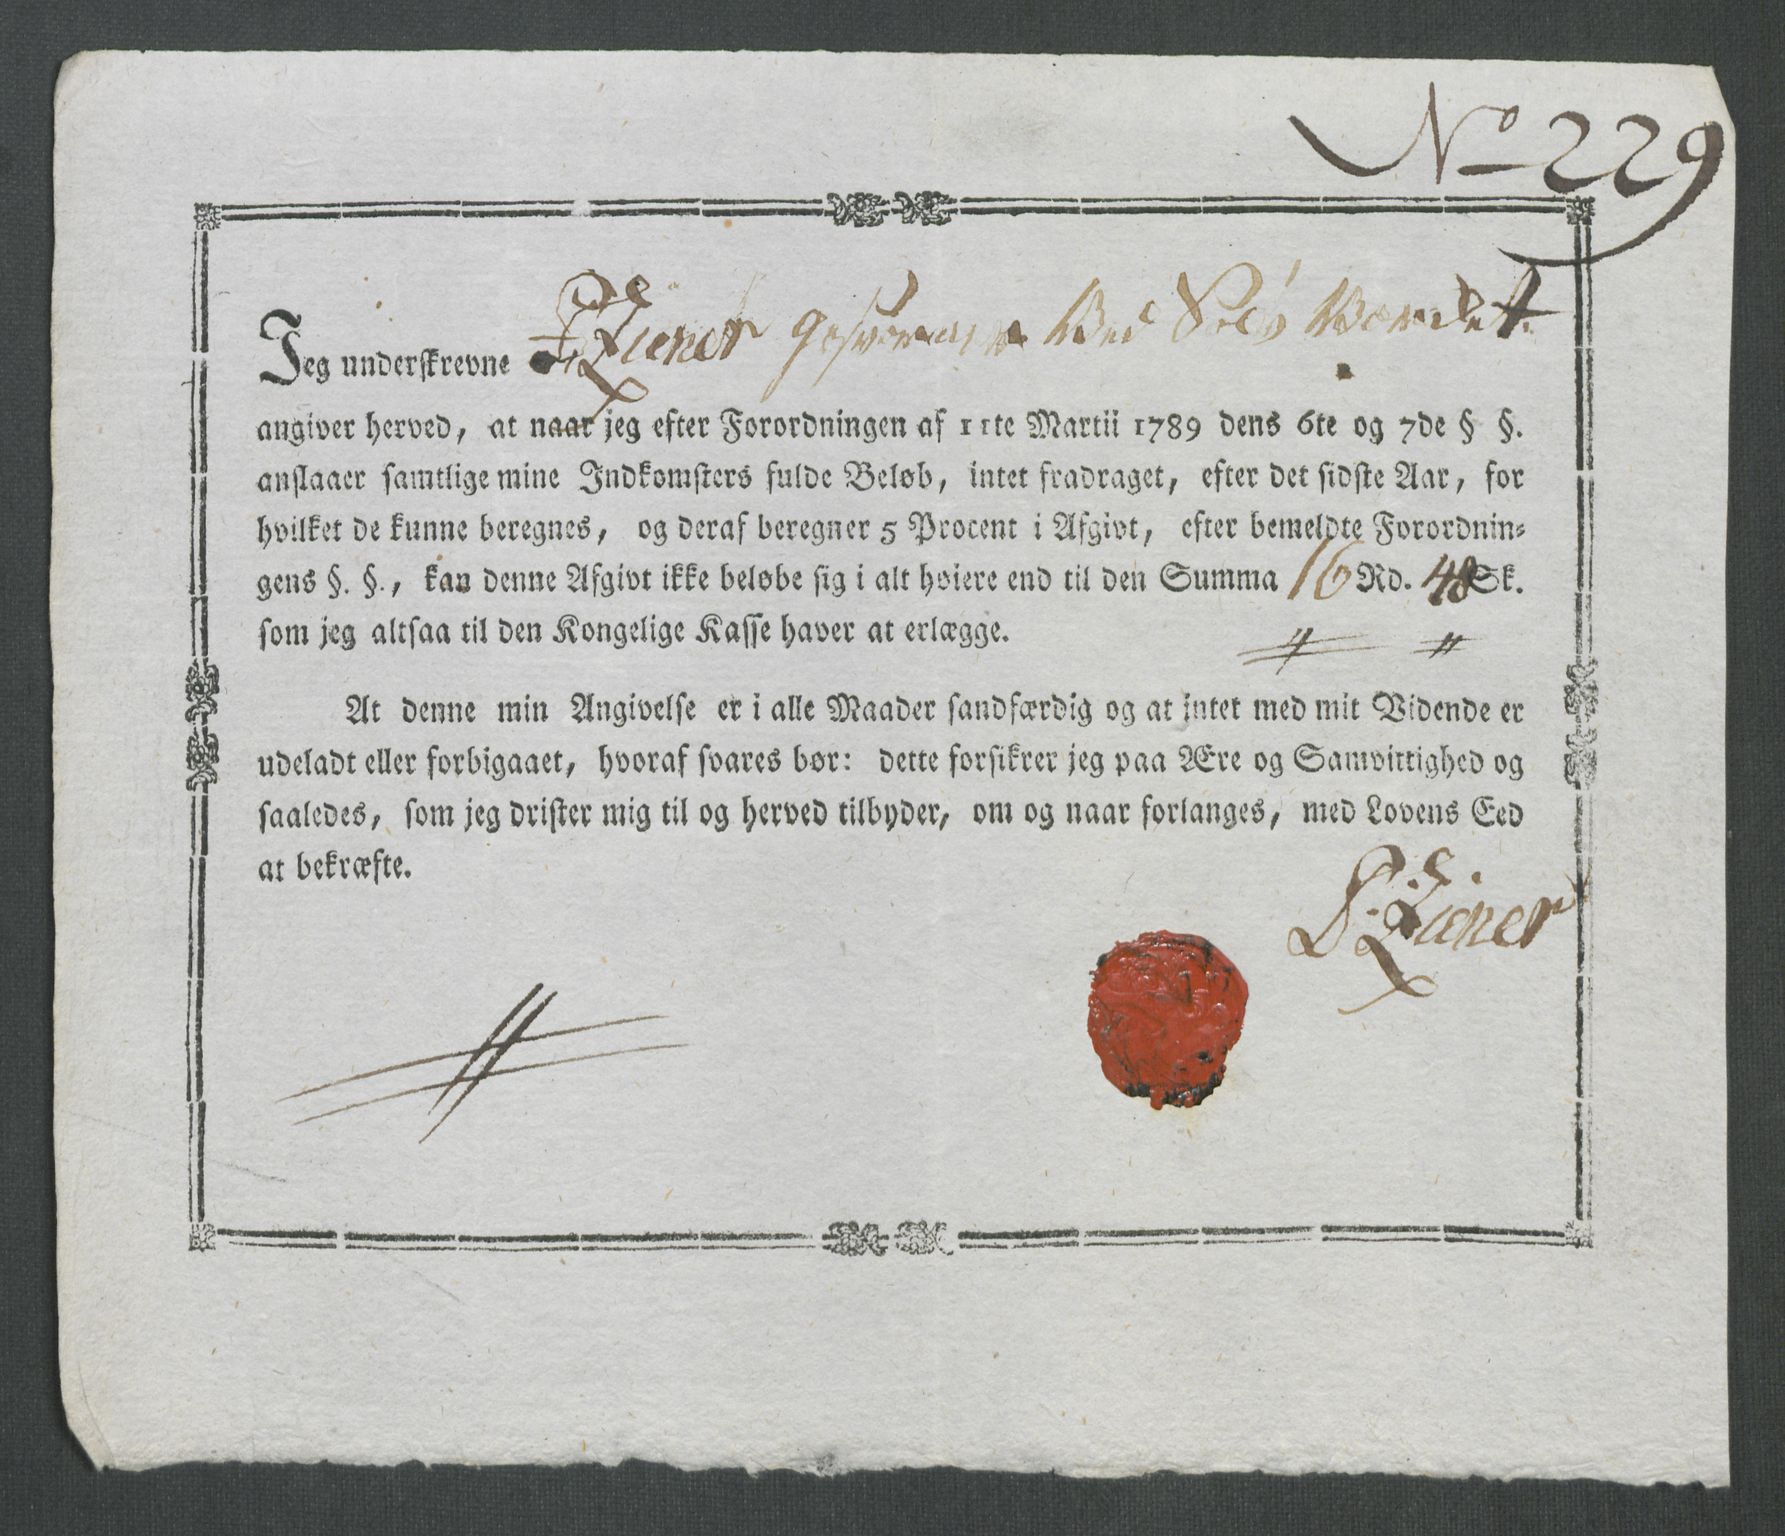 No 229
Jeg underskrevne Ziener Ved
angiver herved, at naar jeg efter Forordningen af 11te Martii 1789 dens 6te og 7de § §.
anslaaer samtlige mine Indkomsters fulde Beløb, intet fradraget, efter det sidste Aar, for
hvilket de kunne beregnes, og deraf beregner 5 Procent i Afgivt, efter bemeldte Forordnin-
gens §. §., kan denne Afgivt ikke beløbe sig i alt høiere end til den Summa 16 Rd. 48 Sk.
som jeg altsaa til den Kongelige Kasse haver at erlægge.
At denne min Angivelse er i alle Maader sandfærdig og at intet med mit Vidende er
udeladt eller forbigaaet, hvoraf svares bør: dette forsikrer jeg paa Ære og Samvittighed og
saaledes, som jeg drister mig til og herved tilbyder, om og naar forlanges, med Lovens Eed
at bekræfte.
Ziener